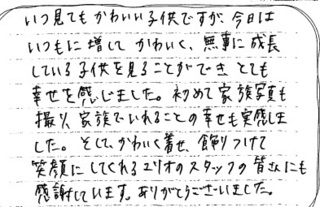 いつ見てもかわいい子供ですが、今日は
いつもに増してかわいく、無事に成長
している子供を見ることができ、とても
幸せを感じました。初めて家族写真も
撮り、家族でいれることの幸せも実感しま
した。そして、かわいく着せ、飾りつけて
笑顔にしてくれるスタッフの皆さんにも
感謝しています。ありがとうございました。